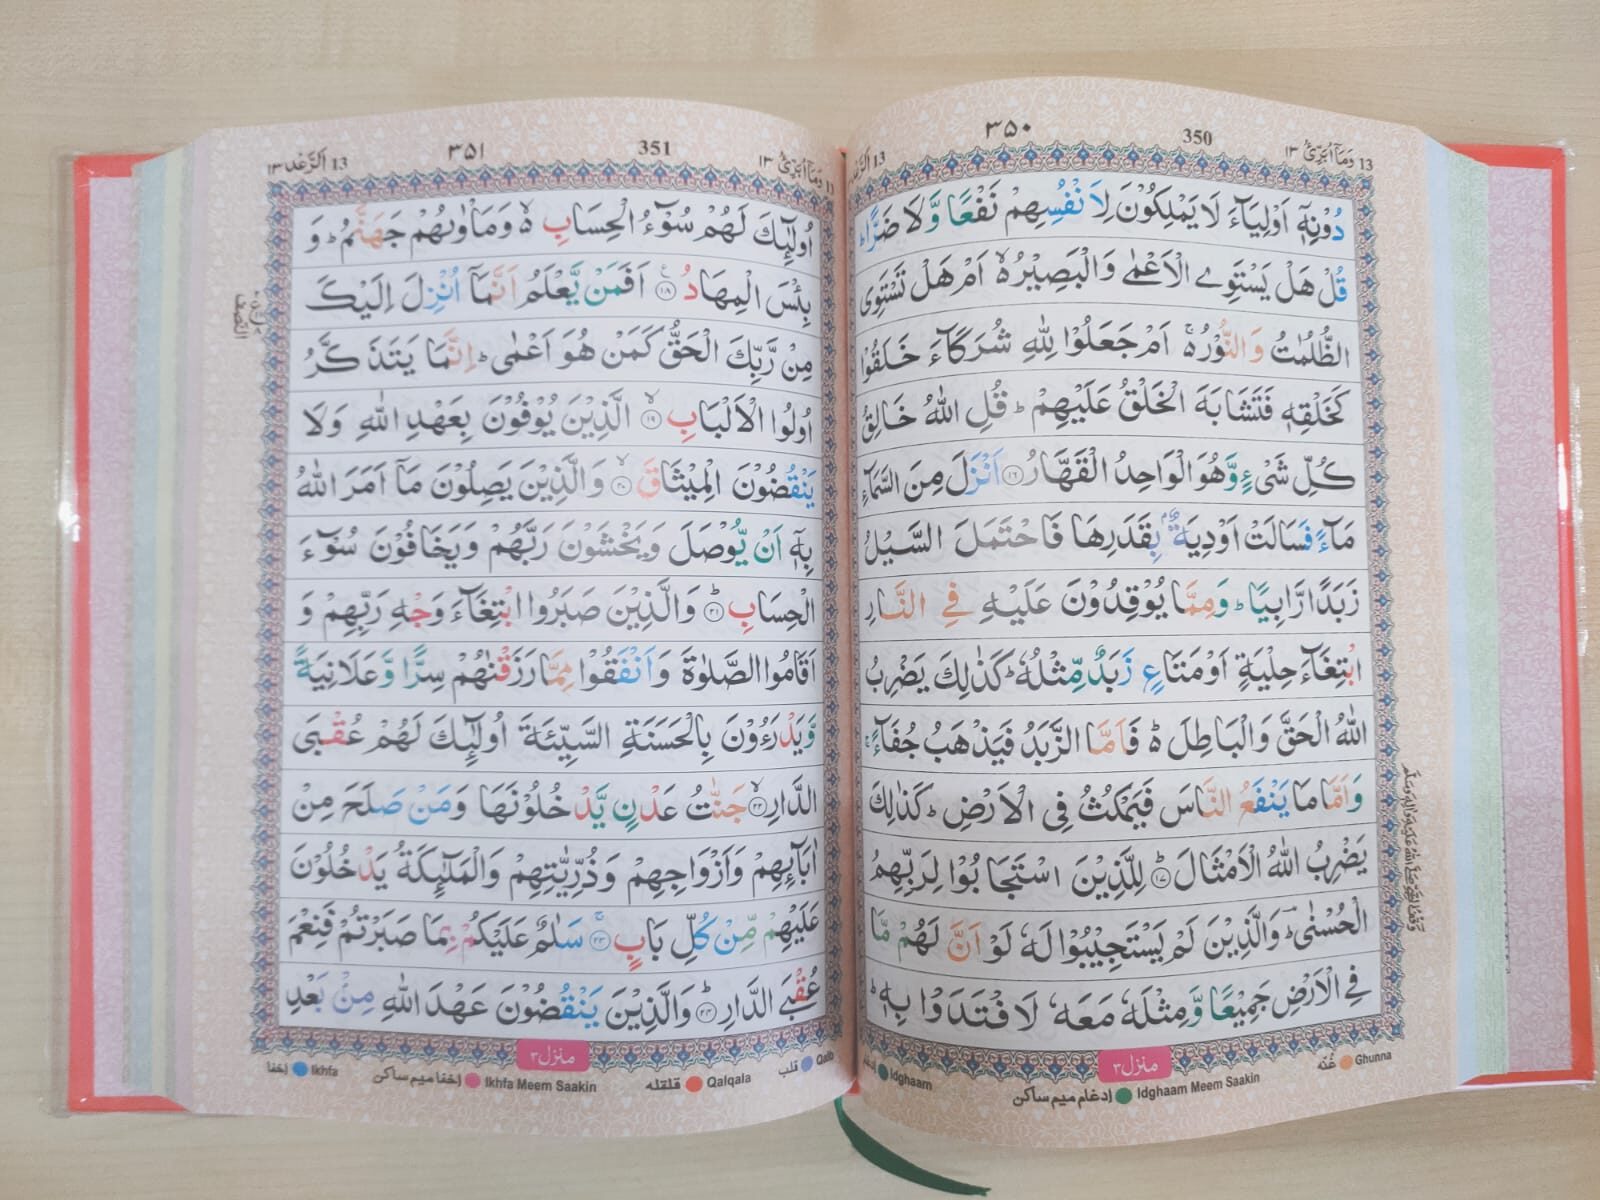 350
٣٥٠
13 وَمَآ اُبَرِّئُ ١٣
13 اَلرَّعْد
دُوْنِهٖٓ اَوْلِيَآءَ لَا يَمْلِكُوْنَ لِاَنْفُسِهِمْ نَفْعًا وَّلَا ضَرًّا ؕ
قُلْ هَلْ يَسْتَوِى الْاَعْمٰى وَالْبَصِيْرُ ۙ۬ اَمْ هَلْ تَسْتَوِى
الظُّلُمٰتُ وَالنُّوْرُ ۚ۬ اَمْ جَعَلُوْا لِلّٰهِ شُرَكَآءَ خَلَقُوْا
كَخَلْقِهٖ فَتَشَابَهَ الْخَلْقُ عَلَيْهِمْ ؕ قُلِ اللّٰهُ خَالِقُ
كُلِّ شَىْءٍ وَّهُوَ الْوَاحِدُ الْقَهَّارُ ۝١٦ اَنْزَلَ مِنَ السَّمَآءِ
مَآءً فَسَالَتْ اَوْدِيَةٌۢ بِقَدَرِهَا فَاحْتَمَلَ السَّيْلُ
زَبَدًا رَّابِيًا ؕ وَمِمَّا يُوْقِدُوْنَ عَلَيْهِ فِى النَّارِ
ابْتِغَآءَ حِلْيَةٍ اَوْ مَتَاعٍ زَبَدٌ مِّثْلُهٗ ؕ كَذٰلِكَ يَضْرِبُ
اللّٰهُ الْحَقَّ وَالْبَاطِلَ ؕ۬ فَاَمَّا الزَّبَدُ فَيَذْهَبُ جُفَآءً ۚ
وَاَمَّا مَا يَنْفَعُ النَّاسَ فَيَمْكُثُ فِى الْاَرْضِ ؕ كَذٰلِكَ
يَضْرِبُ اللّٰهُ الْاَمْثَالَ ۝١٧ؕ لِلَّذِيْنَ اسْتَجَابُوْا لِرَبِّهِمُ
الْحُسْنٰى ؕؔ وَالَّذِيْنَ لَمْ يَسْتَجِيْبُوْا لَهٗ لَوْ اَنَّ لَهُمْ مَّا
فِى الْاَرْضِ جَمِيْعًا وَّمِثْلَهٗ مَعَهٗ لَافْتَدَوْا بِهٖ ؕ
منزل ٣
غُنّه Ghunna
ادغام ميم ساكن Idghaam Meem Saakin
Idghaam
351
٣٥١
وَمَآ اُبَرِّئُ ١٣
13 اَلرَّعْد ١٣
اُولٰٓئِكَ لَهُمْ سُوْٓءُ الْحِسَابِ ۙ۬ وَمَاْوٰىهُمْ جَهَنَّمُ ؕ وَ
بِئْسَ الْمِهَادُ ۝١٨ۧ اَفَمَنْ يَّعْلَمُ اَنَّمَآ اُنْزِلَ اِلَيْكَ
مِنْ رَّبِّكَ الْحَقُّ كَمَنْ هُوَ اَعْمٰى ؕ اِنَّمَا يَتَذَكَّرُ
اُولُوا الْاَلْبَابِ ۝١٩ۙ الَّذِيْنَ يُوْفُوْنَ بِعَهْدِ اللّٰهِ وَلَا
يَنْقُضُوْنَ الْمِيْثَاقَ ۝٢٠ۙ وَالَّذِيْنَ يَصِلُوْنَ مَآ اَمَرَ اللّٰهُ
بِهٖٓ اَنْ يُّوْصَلَ وَيَخْشَوْنَ رَبَّهُمْ وَيَخَافُوْنَ سُوْٓءَ
الْحِسَابِ ۝٢١ؕ وَالَّذِيْنَ صَبَرُوا ابْتِغَآءَ وَجْهِ رَبِّهِمْ وَ
اَقَامُوا الصَّلٰوةَ وَاَنْفَقُوْا مِمَّا رَزَقْنٰهُمْ سِرًّا وَّعَلَانِيَةً
وَّيَدْرَءُوْنَ بِالْحَسَنَةِ السَّيِّئَةَ اُولٰٓئِكَ لَهُمْ عُقْبَى
الدَّارِ ۝٢٢ۙ جَنّٰتُ عَدْنٍ يَّدْخُلُوْنَهَا وَمَنْ صَلَحَ مِنْ
اٰبَآئِهِمْ وَاَزْوَاجِهِمْ وَذُرِّيّٰتِهِمْ وَالْمَلٰٓئِكَةُ يَدْخُلُوْنَ
عَلَيْهِمْ مِّنْ كُلِّ بَابٍ ۝٢٣ۚ سَلٰمٌ عَلَيْكُمْ بِمَا صَبَرْتُمْ فَنِعْمَ
عُقْبَى الدَّارِ ۝٢٤ؕ وَالَّذِيْنَ يَنْقُضُوْنَ عَهْدَ اللّٰهِ مِنْۢ بَعْدِ
منزل ٣
قلب Qalb
قلقله Qalqala
اخفا ميم ساكن Ikhfa Meem Saakin
اخفا Ikhfa